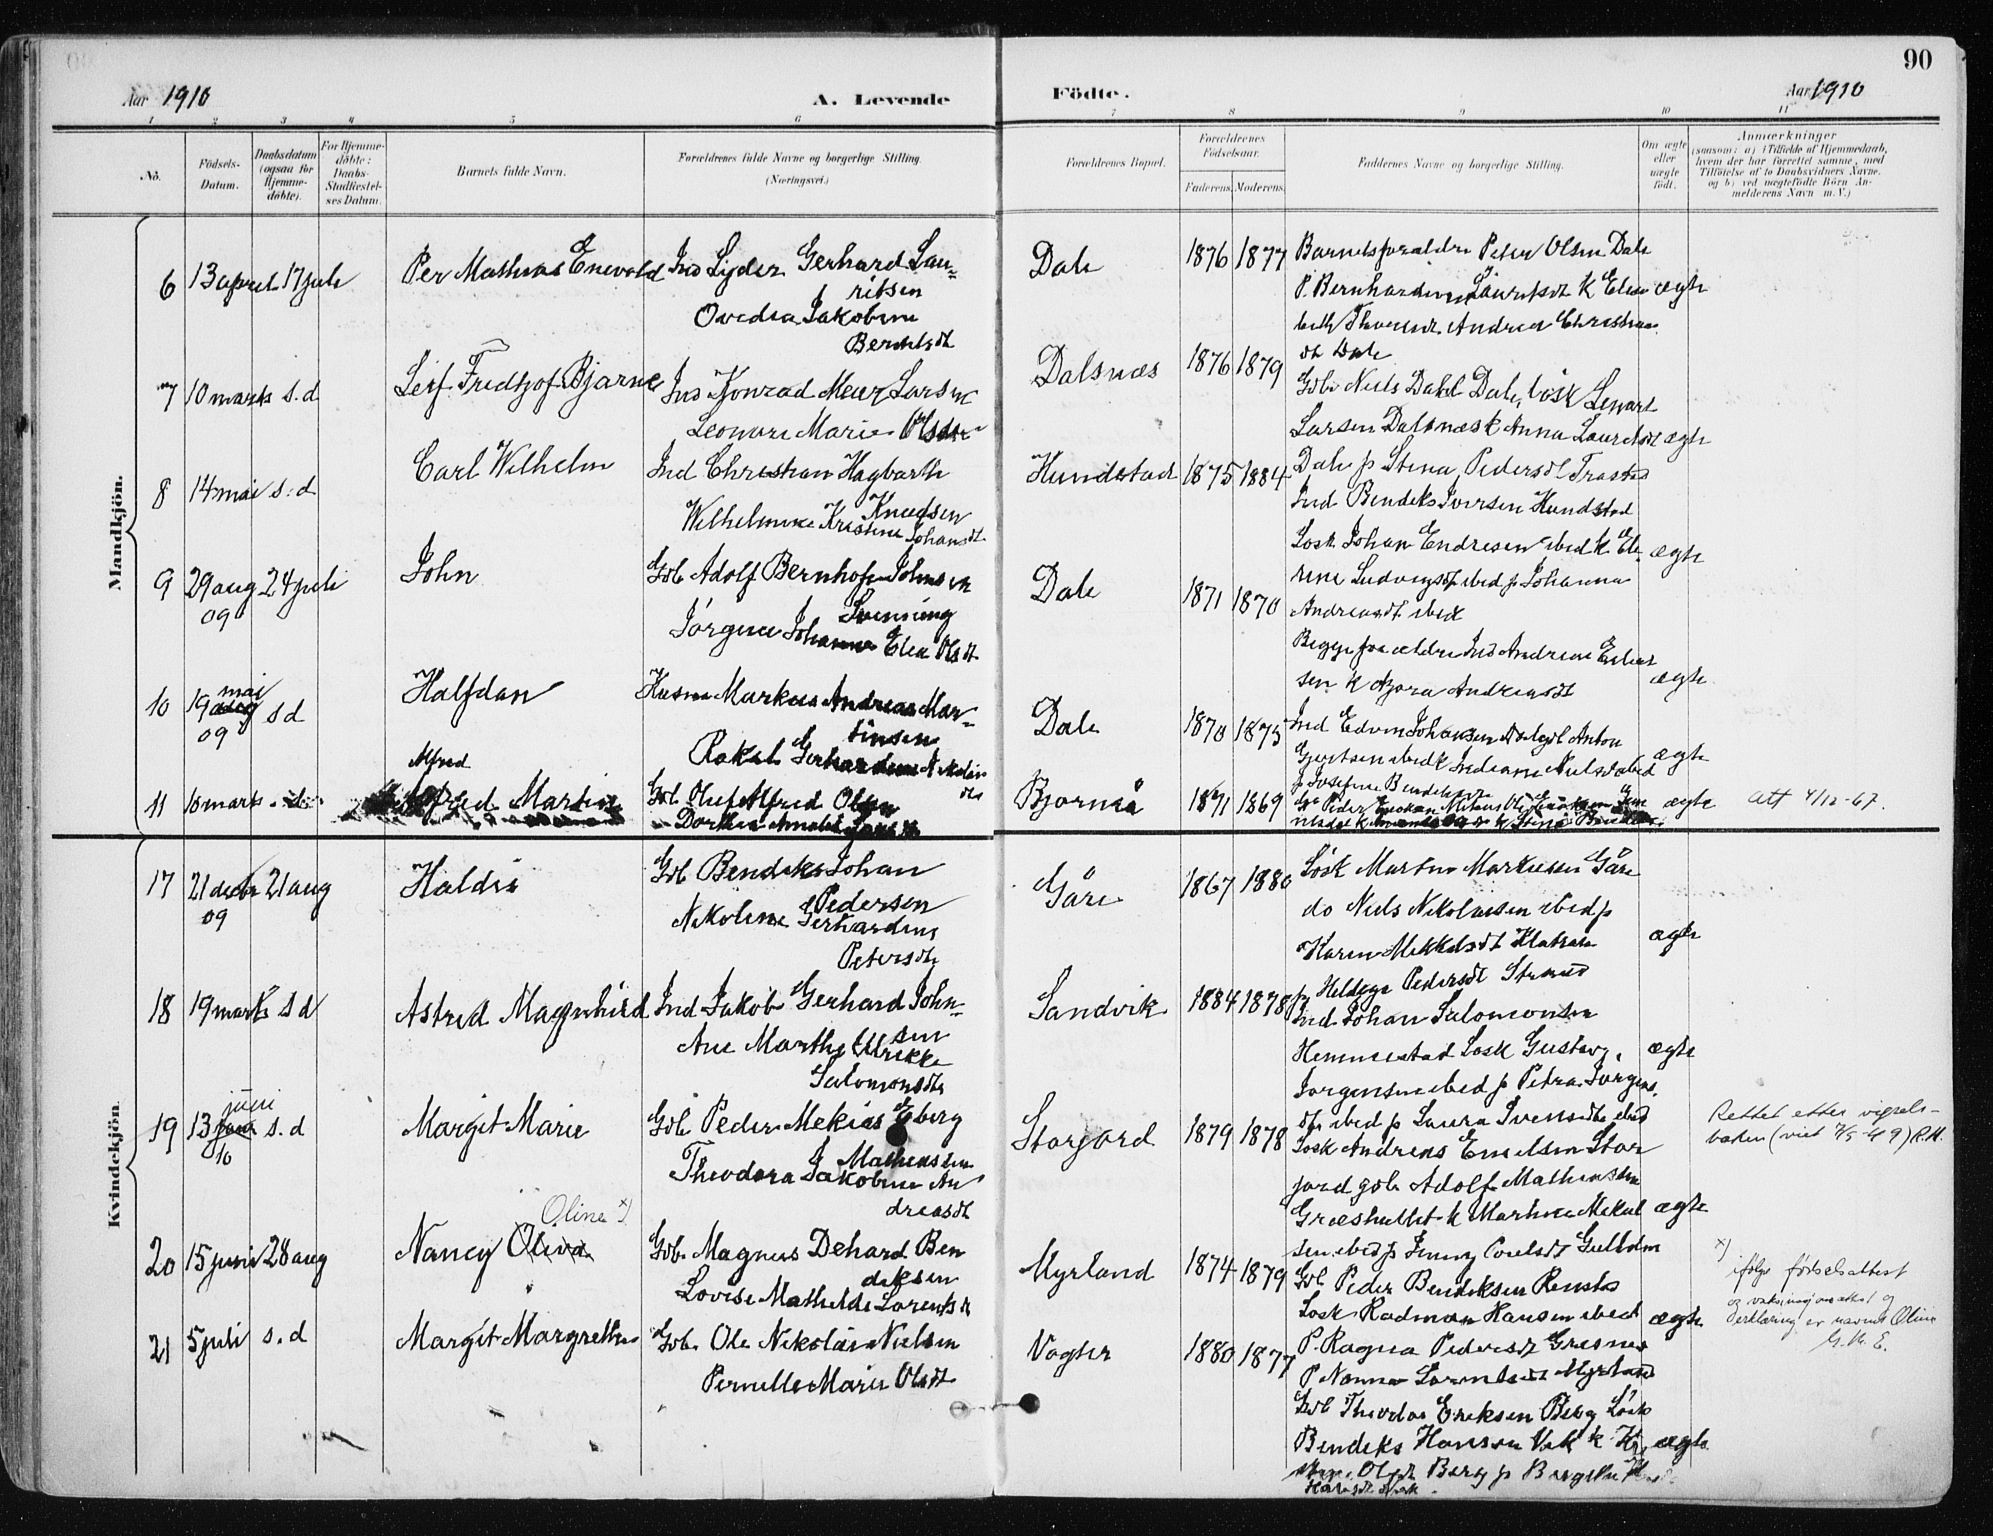 90
Aar 1910 A. Levende Födte. Aar 1910
1 2 3 4 5 6 7 8 9 10 11
No.
Födsels-Datum.
Daabsdatum (ogsaa for Hjemme-döbte).
For Hjemme-döbte: Daabs-Stadfæstel-ses Datum.
Barnets fulde Navn.
Forældrenes fulde Navne og borgerlige Stilling.
(Næringsvei.)
Forældrenes Bopæl.
Forældrenes Födselsaar.
Faderens. Moderens.
Faddernes Navne og borgerlige Stilling.
Om ægte eller uægte födt.
Anmærkninger
(saasom: a) i Tilfælde af Hjemmedaab,
hvem der har forrettet samme, med
Tilföielse af to Daabsvidners Navne.
og b) ved uægtefödte Börn An-
melderens Navn m. V.)
Mandkjön.
6 13 april 17 juli Per Mathias Enevold Ind Lyder Gerhard Lau-
ritsen
Ovedia Jakobine
Berntsdt
Dale 1876 1877 Barnets forældre Peter Olsen Dale
P. Bernhardine Lauritsdt K Elisa
beth Andrea Christian
dt Dale
ægte
7 10 marts s.d Leif Fridtjof Bjarne Ind Konrad Meier Larsen
Leonore Marie Olsdt
Dalsnæs 1876 1879 Gdb Niels Dahl Dale, Løsk Lenart
Larsen Dalsnæs K Anna Lauritsdt
Dale p Stina Pedersdt Trastad
ægte
8 14 mai s.d Carl Wilhelm Ind Christian Hagbarth
Knudsen
Wilhelmine Kristine Johansdt
Hundstad 1875 1884 Ind Bendiks Iversen Hundstad
Løsk Johan Endresen ibed K Ele
rine Ludvigsdt ibed p Johanna
Andreasdt ibed
ægte
9 29 aug 09 24 juli John Gdb Adolf Bernhof Johnsen
Svenning
Jørgine Johanna Elea Olsdt
Dale 1871 1870 Begge forældre Ind Andreas
sen K Nora Andreasdt
ægte
10 19 mai 09 s d Halfdan Husm Markus Andreas Mar-
tinsen
Rakel Gerhardine Nikolai
dt
Dale 1870 1873 Ind Edvin Johansen Anton
Gjertsen ibed K Indiane Nielsdt ibed
p Josefine Bendiksdt
ægte
11 10 marts s.d Alfred
Alfred Martin
Gdb Oluf Alfred Olsen
Dorthea Amalie
Bjornrå 1871 1869 Peder
ægte att 4/12-67.
Kvindekjön
17 21 decbr 09 21 aug Haldis Gdb Bendiks Johan
Pedersen
Nikoline Gerhardine
Petersdt
Gåre 1867 1880 Løsk Martin Markusen Gåre
do Niels Nikolaisen ibed p
Karen Mikkelsdt
p Heldega Pedersdt Strand
ægte
18 19 marts s d Astrid Magnhild Ind Jakob Gerhard John-
sen
Ane Marthe Ulrikke
Salomonsdt
Sandvik 1884 1878 Ind Johan Salomonsen
Hemmestad Løsk Gustav
Jørgensen ibed p Petra Jørgens.
dt ibed p Laura Svensdt ibed
ægte
19 13 juni 10 s.d Margit Marie Gdb Peder Mekias Eberg
Mathiassen
Theodora Jakobine An
dreasdt
Storjord 1879 1878 Løsk Andreas Emilsen Stor
jord gdb Adolf Mathiassen
Græshullet K Martine Mekal
sen ibed p Jenny Gullholm
ægte
Rettet etter vigsels-
boken (viet 7/5-49) R.H.
20 15 juni 28 aug Nancy Oliva Oline x) Gdb. Magnus Dehard Ben
diksen
Lovise Mathilde Lorentsdt
Myrland 1874 1879 Gdb Peder Bendiksen Renså
Løsk Radman Hansen ibed
P. Ragna Pedersdt Græsnes
P Nanna Lorentsdt Myrland
ægte
x)
ifølge fødselsattest
og vaksinasjonsattest og
erklæring er navnet Oline
G.M.E.
21 5 juli s.d Margit Margrethe Gdb. Ole Nikolai Nielsen
Pernille Marie Olsdt
Vogter 1880 1877 Gdb Theodor Eriksen Berg Løsk
Bendiks Hansen Vik K
Olsdt Berg p Bergitte
ægte